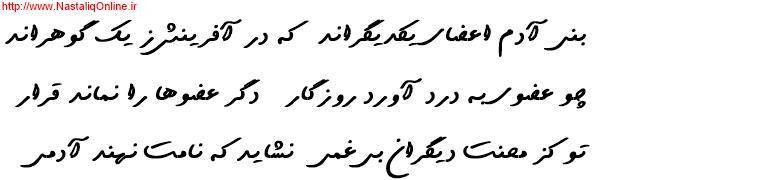 http://www.NastaliqOnline.ir
بنی آدم اعضای یکدیگراند که در آفرینش ز یک گوهراند
چو عضوی به درد آورد روزگار دگر عضوها را نماند قرار
تو کز محنت دیگران بی غمی نشاید که نامت نهند آدمی